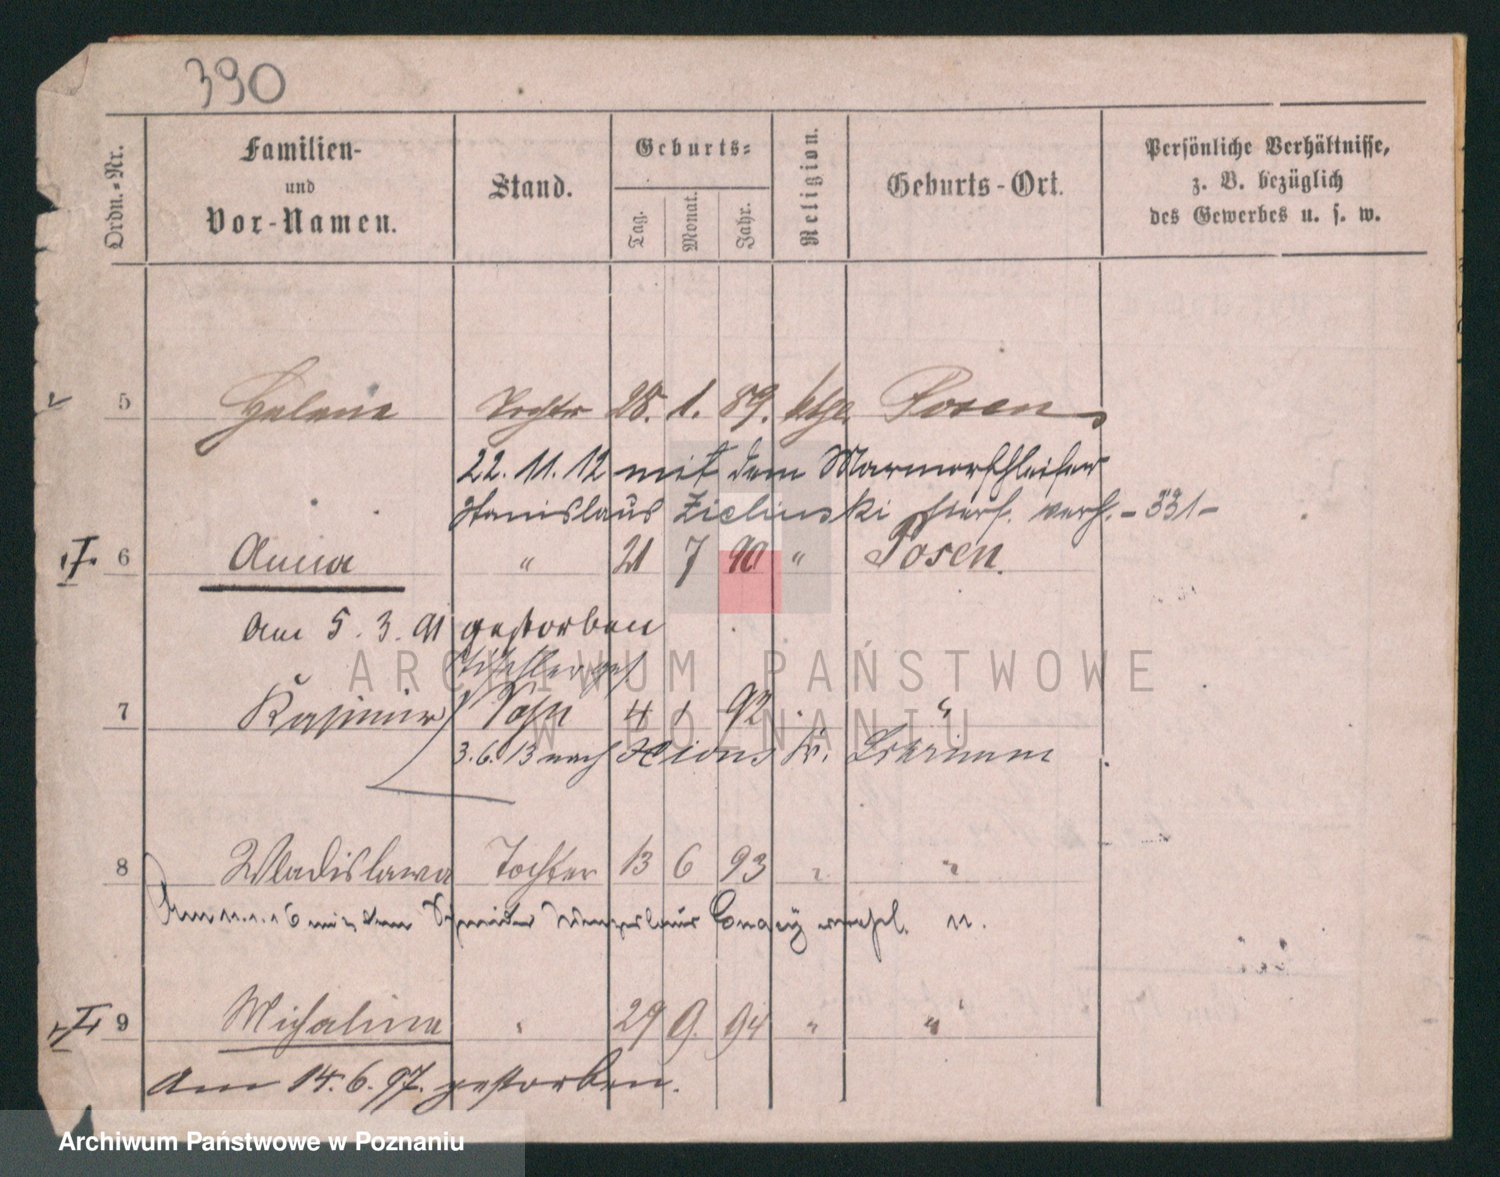 390
Ordn.-Nr.
Familien-
und
Vor-Namen.
Stand.
Geburts-
Tag.
Monat.
Jahr.
Religion.
Geburts-Ort.
Persönliche Verhältnisse,
z. B. bezüglich
des Gewerbes u. s. w.
5 Helene Tochter 28. 1. 89. kth. Posen
22. 11. 12 mit dem Marmorschleifer
Stanislaus Zielinski verh. - 331 -
I. 6 Anna " 21 7 90 " Posen.
Am 5. 3. 91 gestorben
Tischlerges
7 Kasimir Sohn 4 1 92 "
3. 6. 13 nach Xions Kr. Schrimm
8 Wladislawa Tochter 13 6 93 " "
Am 11. 1. 16 mit dem verehel.
I 9 Michalina " 29 9. 94 " "
Am 14. 6. 97. gestorben.
ARCHIWUM PAŃSTWOWE
W POZNANIU
Archiwum Państwowe w Poznaniu